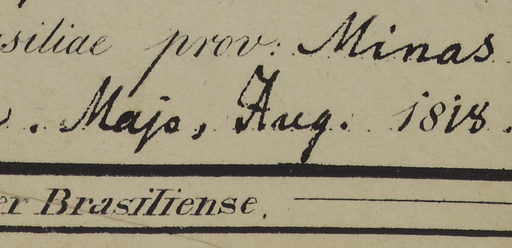 siliae prov: Minas
. Majo, Aug. 1818.
er Brasiliense.